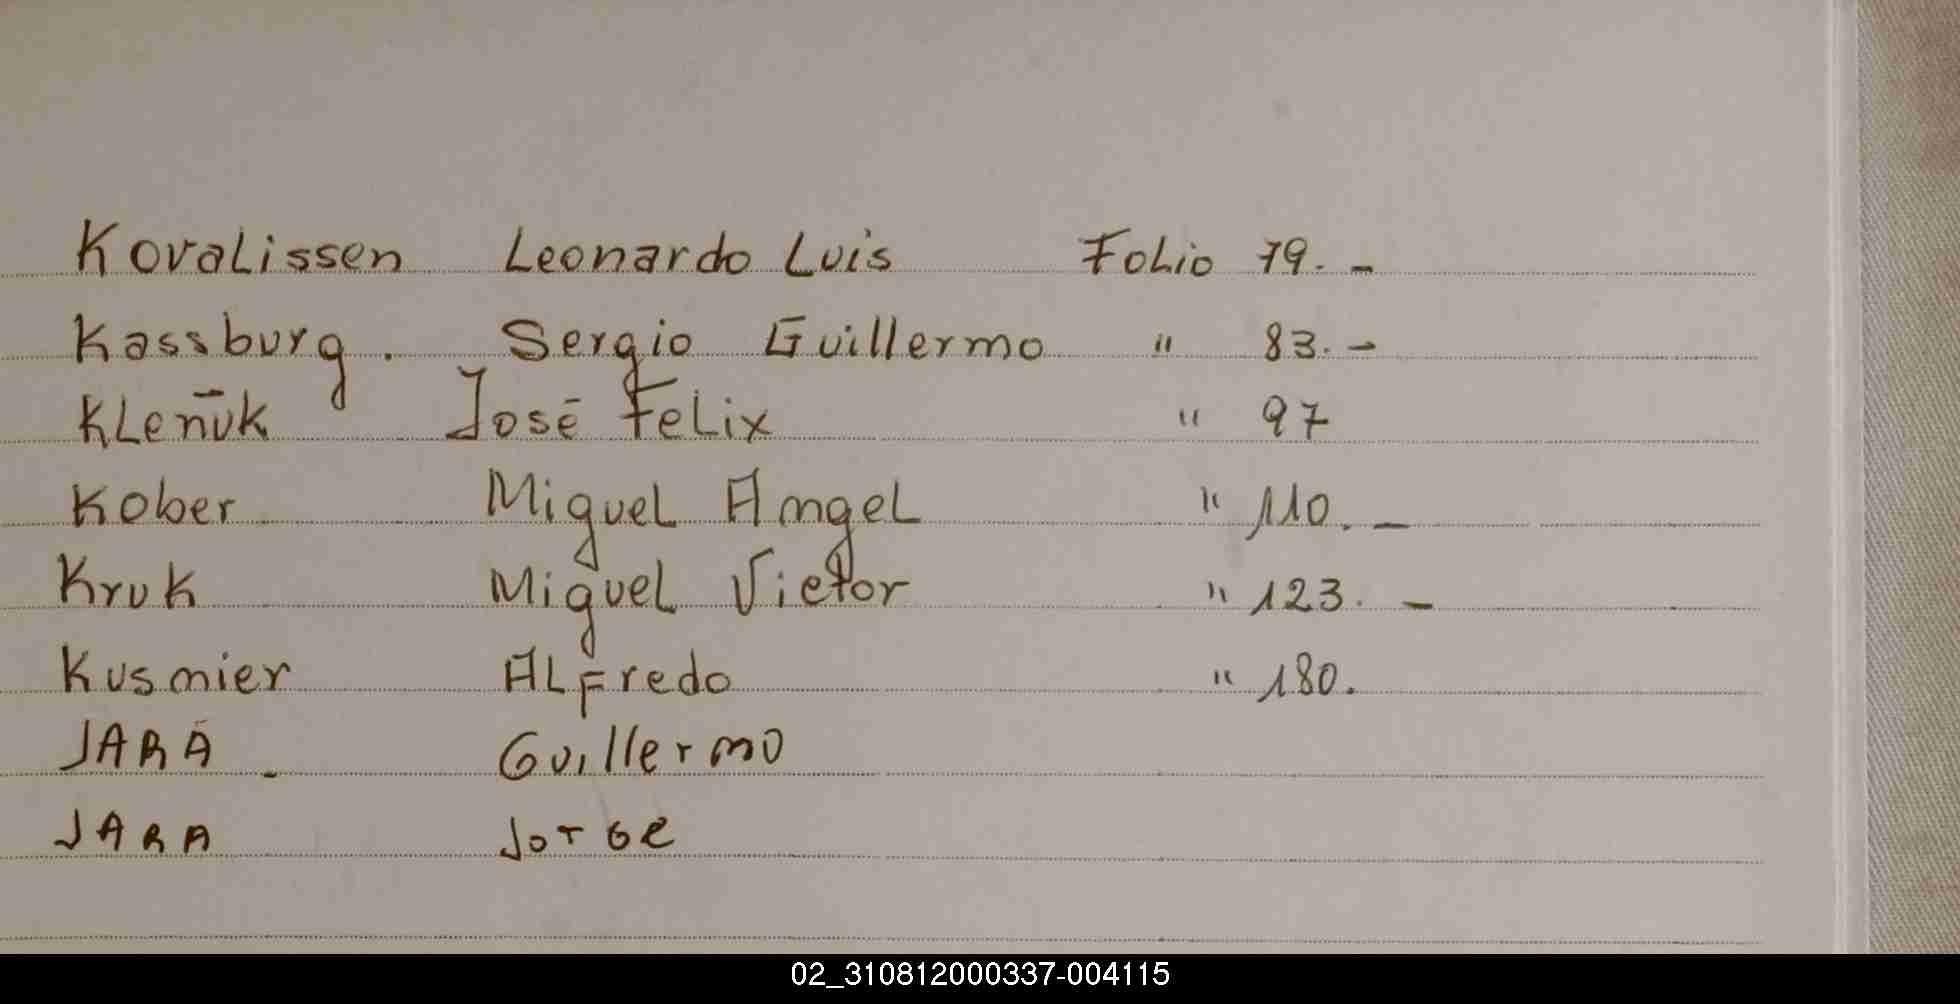 Kovalissen Leonardo Luis Folio 79. -
Kassburg. Sergio Guillermo " 83. -
Kleñuk José Felix " 97
Kober Miguel Angel " 110. -
Kruk Miguel Victor " 123. -
Kusmier Alfredo " 180.
JARA - Guillermo
JARA Jorge
02_310812000337-004115